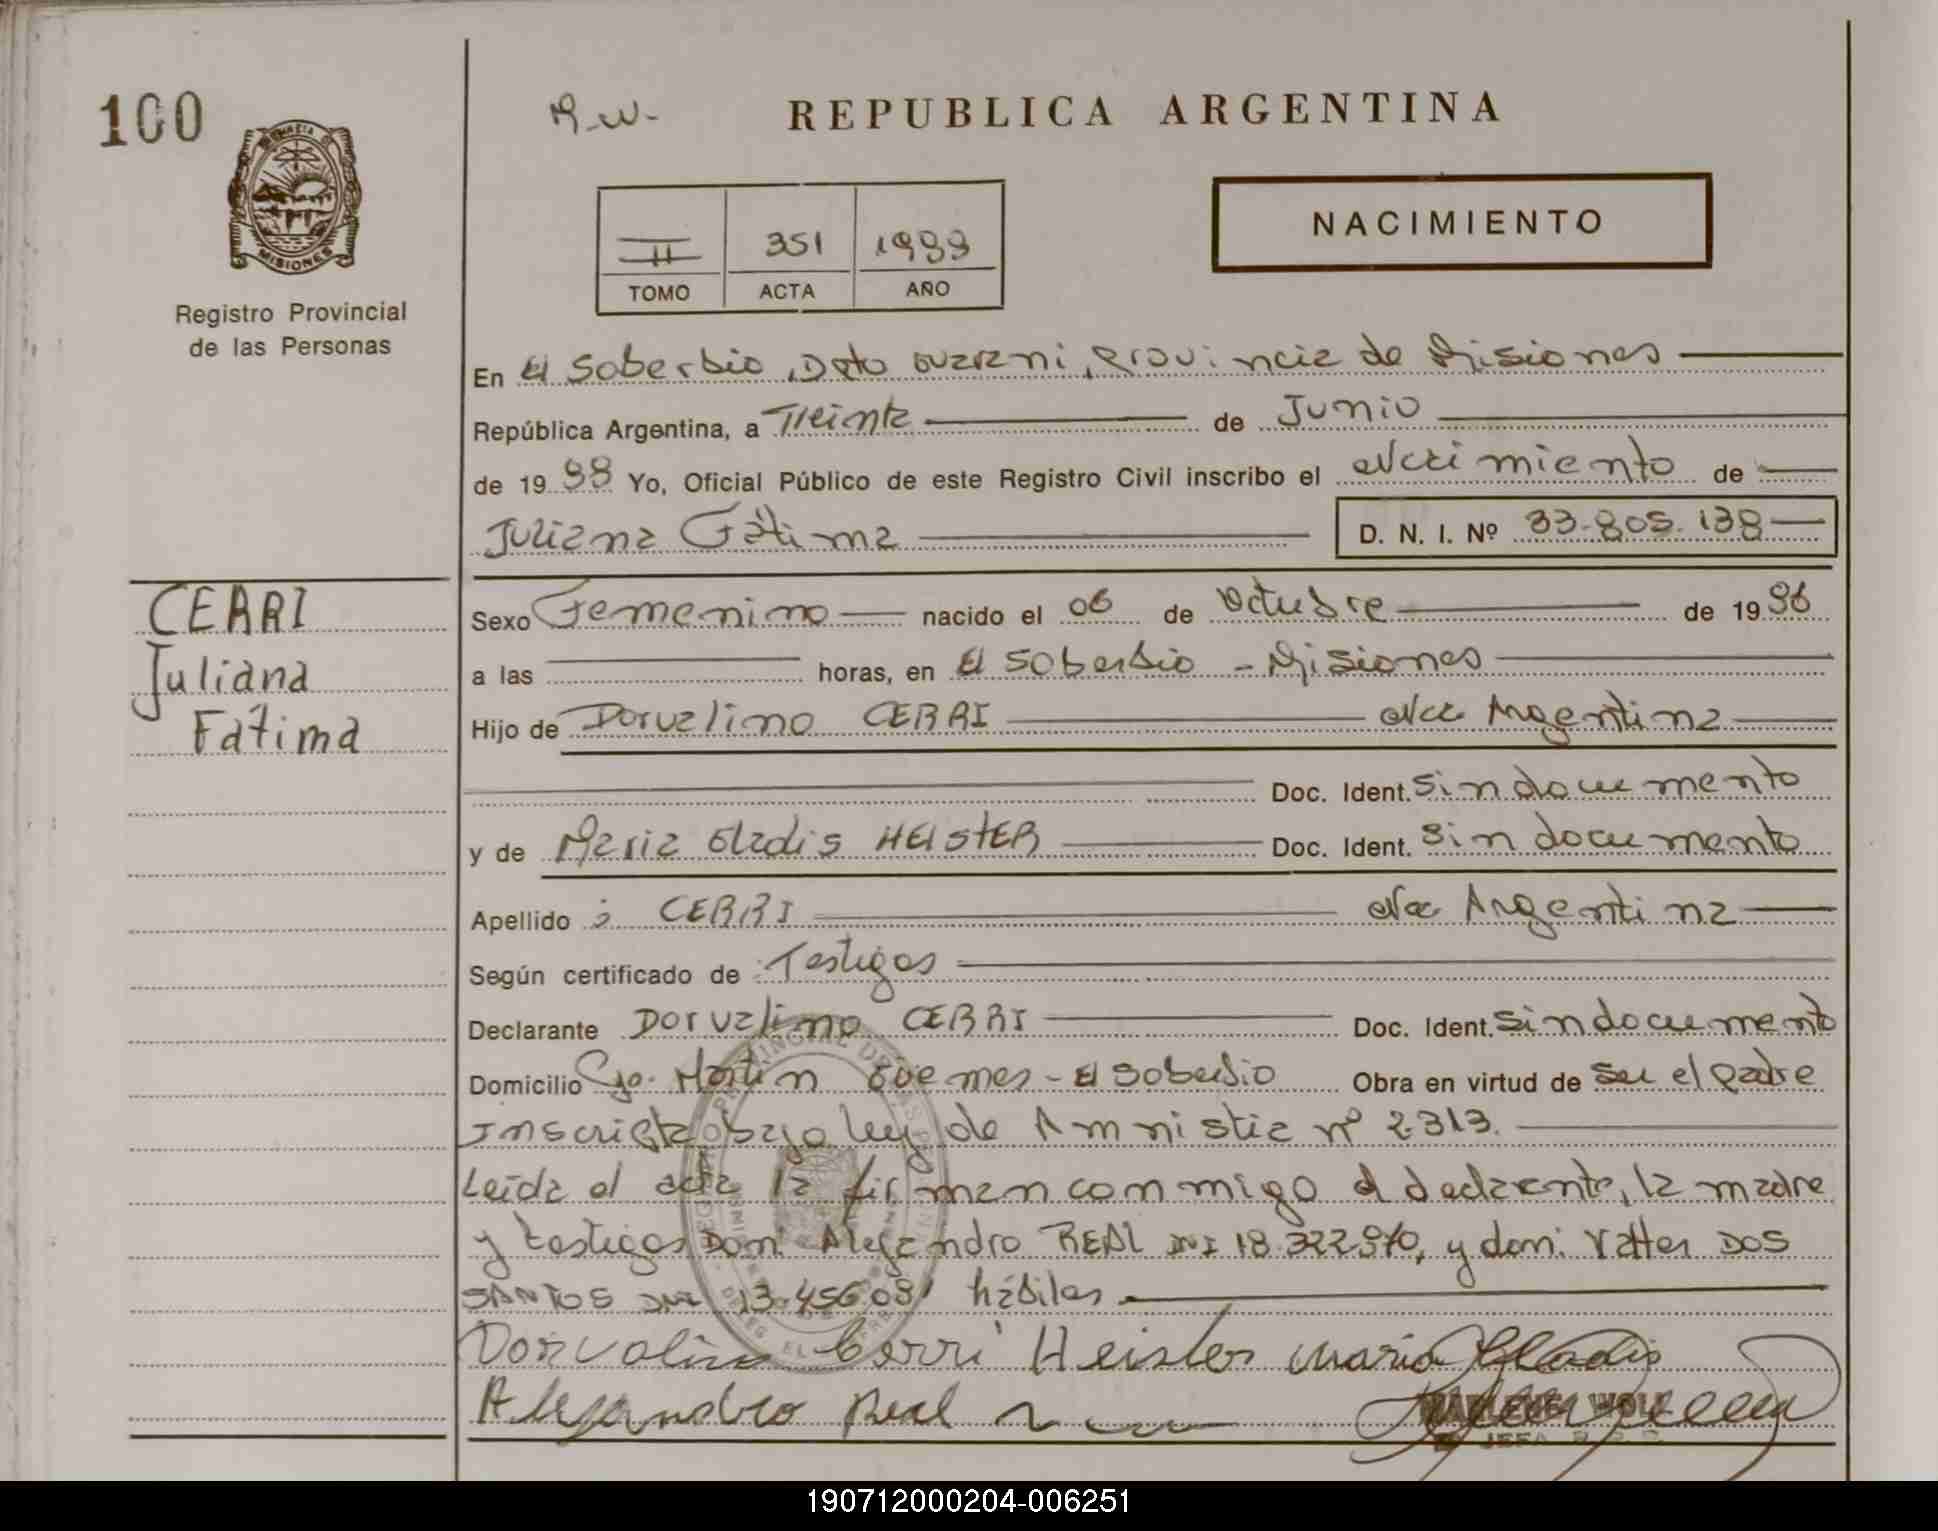 100
R.W.
REPUBLICA ARGENTINA
MISIONES
Registro Provincial
de las Personas
II 351 1999
TOMO ACTA AÑO
NACIMIENTO
En El Soberbio, Dpto Guarani, Provincia de Misiones
República Argentina, a Treinta de Junio
de 19 99 Yo, Oficial Público de este Registro Civil inscribo el Nacimiento de
Juliana Fátima D. N. I. Nº 33.805.138
CERRI
Juliana
Fátima
Sexo Femenino nacido el 06 de Octubre de 19 96
a las horas, en El Soberbio - Misiones
Hijo de Dorvalino CERRI Nac Argentina
Doc. Ident. Sin documento
y de Maria Gladis HEISTER Doc. Ident. Sin documento
Apellido CERRI Nac Argentina
Según certificado de Testigos
Declarante Dorvalino CERRI Doc. Ident. Sin documento
Domicilio Martin Güemes - El Soberbio Obra en virtud de Ser el padre
Inscripta bajo ley de Amnistia nº 2.313.
Leida el acta la firman conmigo el declarante, la madre
y testigos Don: Alejandro REAL DNI 18.322.970, y don: Valter DOS
SANTOS DNI 13.456.081 hábiles
Dorvalino Cerri Heister Maria Gladis
Alejandro Real
JEFA R.P.P.
190712000204-006251